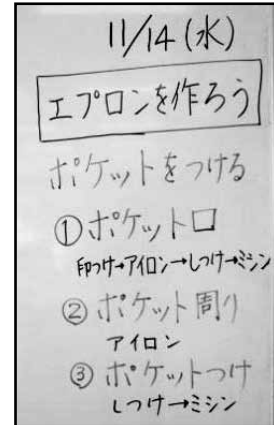 11/14(水)
エプロンを作ろう
ポケットをつける
①ポケット口
印つけ→アイロン→しつけ→ミシン
②ポケット周り
アイロン
③ポケットつけ
しつけ→ミシン